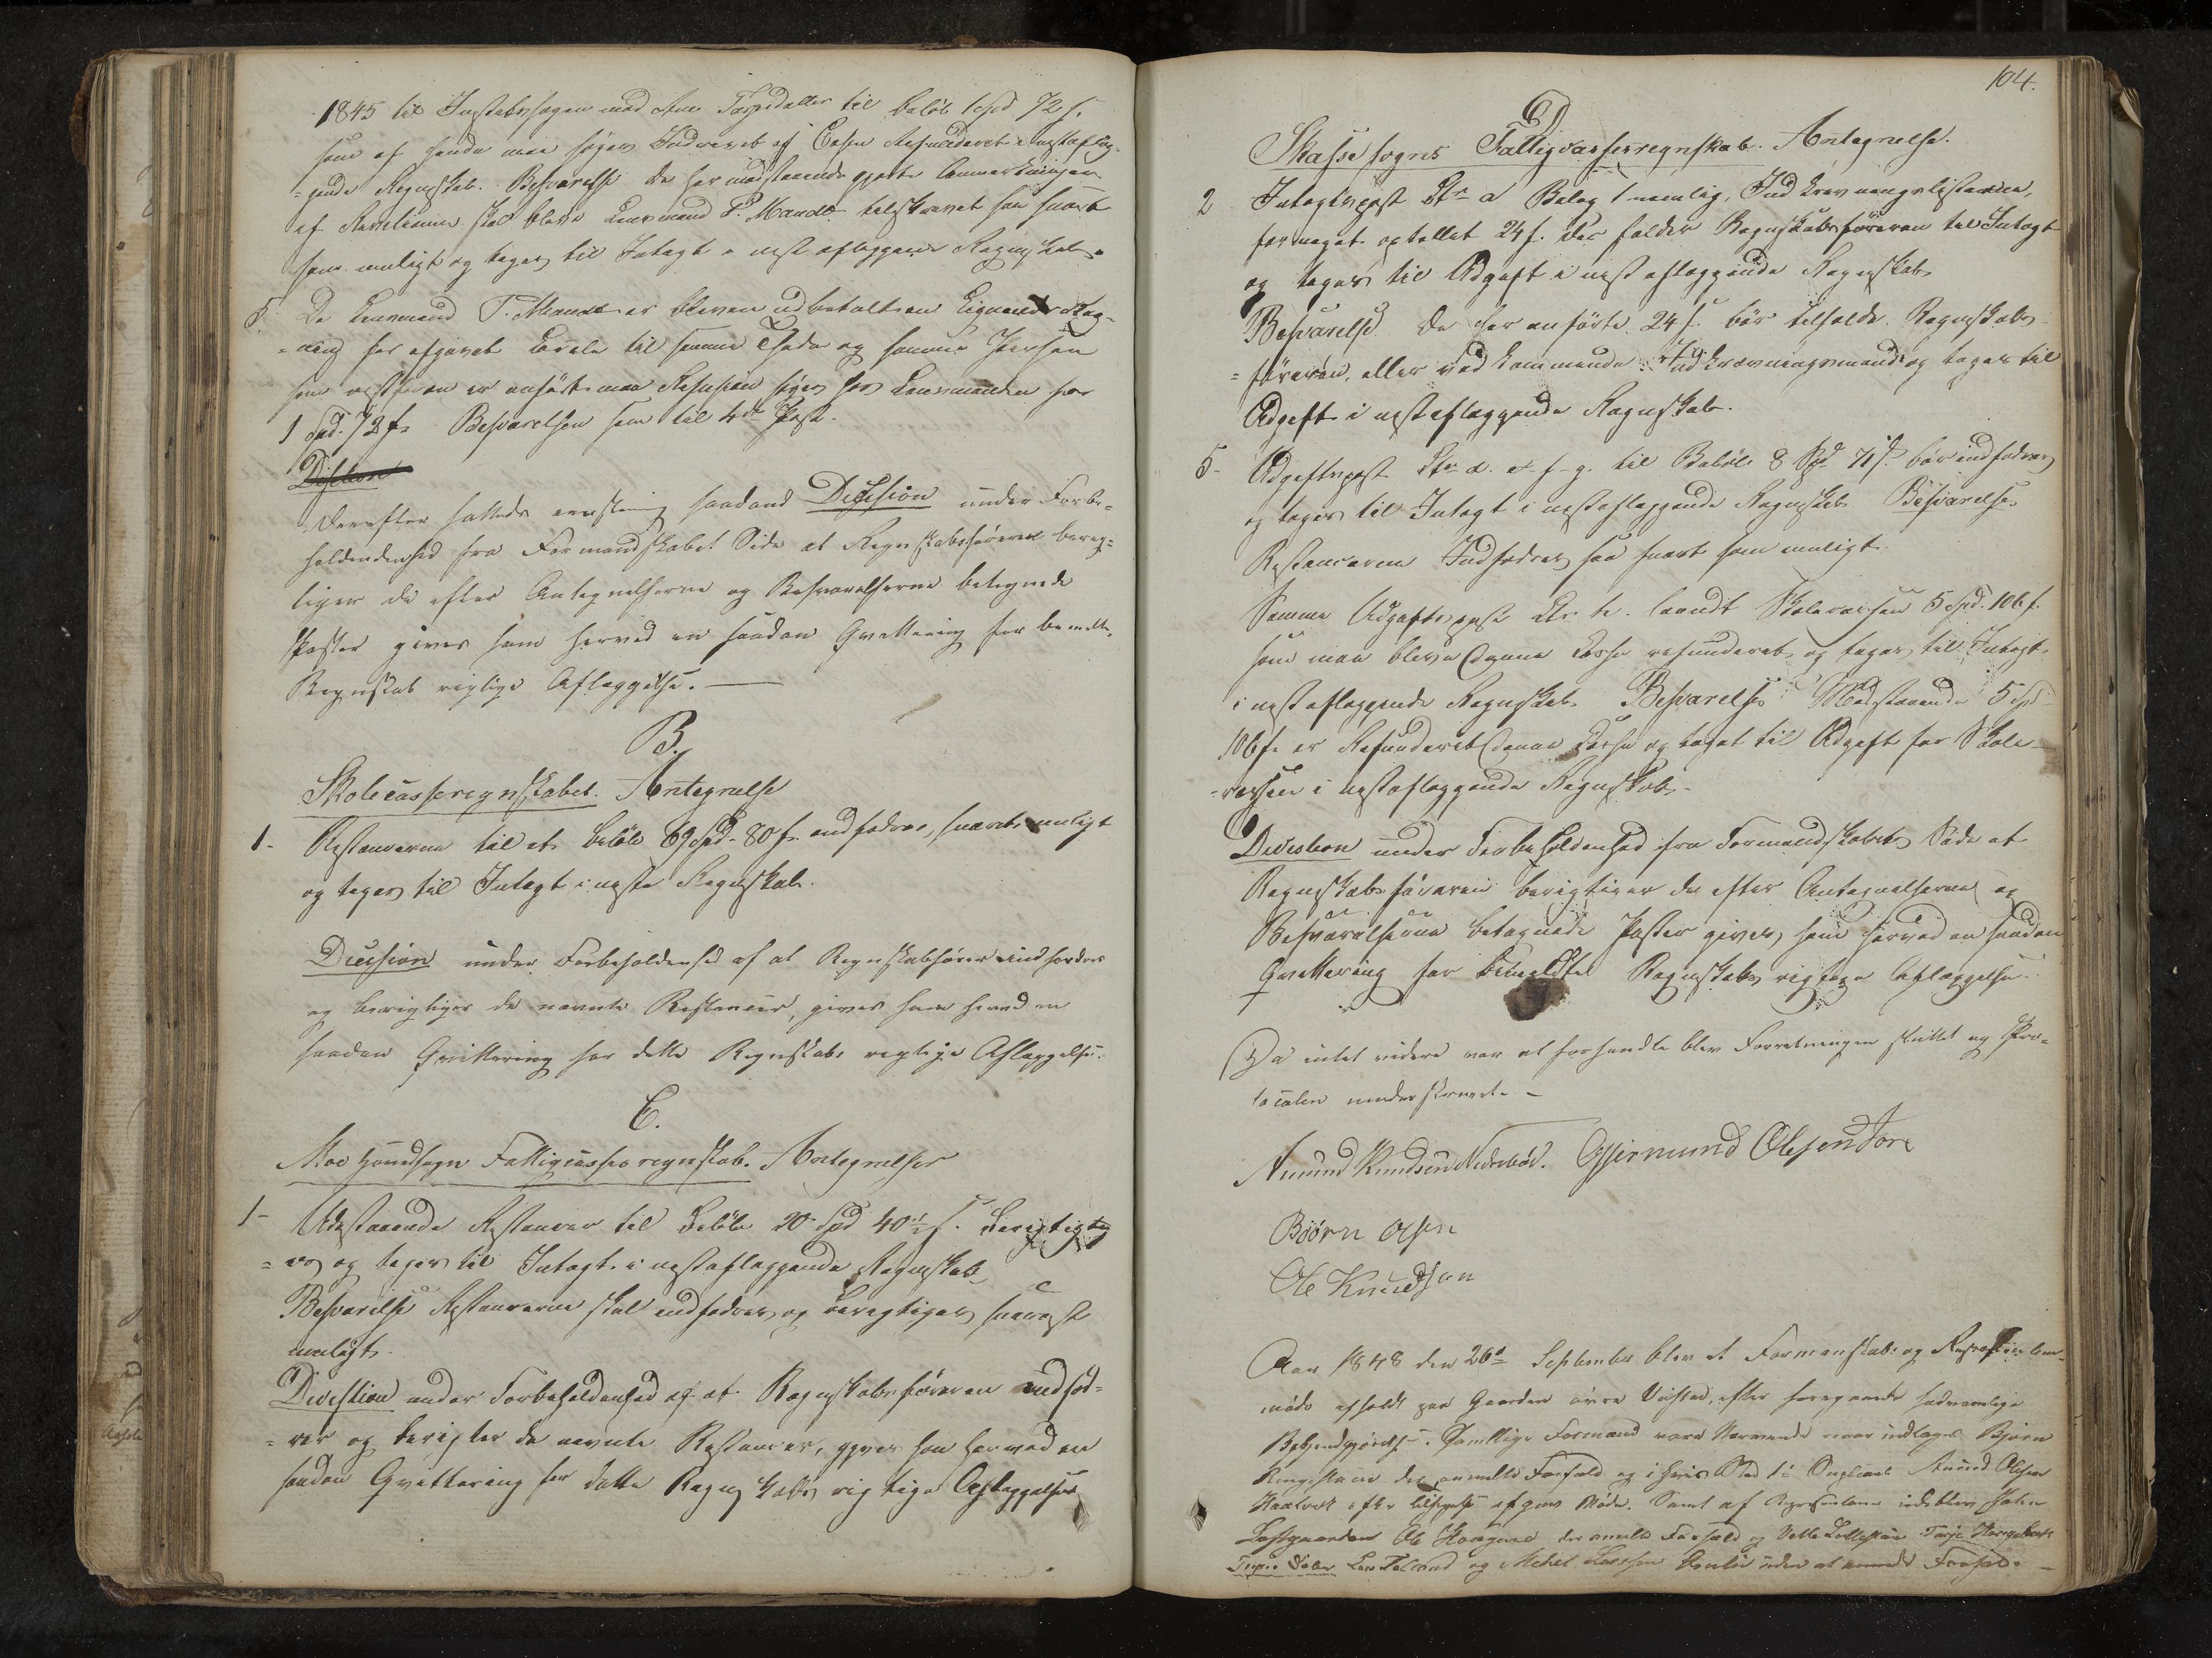 1845 til Justitssagen mod Ane Tarjesdatter til beløb 1 Spd 72 s.
som af hende maa søges Inddrevet og Casen Refunderet i næstaflæg-
=gende Regnskab. Besvarelse De her modstaaende gjorte Anmærkninger
af Revisionen skal blive Lensmand T. Mandt tilskrevet saa snart
som muligt og tages til Intægt i næst aflæggende Regnskab.
5. De Lensmand T. Mandt er bleven udbetalt en Ligned
=ning for afgivet til samme og samme
som er anført maa Refusion søges hos Lensmanden for
1 Spd. 72 s. Besvarelsen som til 4de Post.
Derefter fattedes eenstemmig saadand Decision under Forbe=
holdendenhed fra Formandskabet Side at Regnskabsføreren berig=
tiger de efter Antegnelserne og Besvarelserne betegnede
Poster gives ham herved en saadan Qvittering for bemelte
Regnskab rigtige Aflæggelse.
B.
Skolecasseregnskabet. Antegnelse
1- Restancerne til et beløb 69 Spd - 80 s. indfodres, snarest muligt
og tages til Intægt i næste Regnskab.
Decision under Forbeholdenhed af at Regnskabsfører indfordrer
og berigtiger de nævnte Restancer, gives ham herved en
saadan Qvittering for dette Regnskabs rigtige Aflæggelse.
C.
Moe Hovedsogn Fattigcasseregnskab. Antegnelser
1- Udestaaende Restancer til beløb 20 Spd 40½ s. berigtig
=es og tages til Intægt i næstaflæggende Regnskab
Besvarelse Restancerne skal indfodres og berigtiges snarest
muligt.
Decistion under Forbeholdenhed af at Regnskabsføreren indfod=
=rer og berigter de nevnte Restancer, gives ham herved en
saadan Qvittering for dette Regnskabs rigtige Aflæggelse
104.
D
Skafse sogns Fattigcasseregnskab. Antegnelse.
2 Intægtspost Ltr a Bilag 1 nemlig, Indkrævningslisterne,
for meget optallet 24 s. der falder Regnskabsføreren til Intægt
og tages til Udgift i næst aflæggende Regnskab
Besvarelse De her anførte 24 s. bør tilfalde Regnskabs-
=føreren, eller ved kommende Indkrævningsmænd og tages til
Udgift i næstaflæggende Regnskab.
5- Udgiftspost Ltr d. e- f- g. til Beløb 8 Spd 71 s. bør indfodres
og tages til Intægt i næstaflæggende Regnskab Besvarelse
Restancerne Indfodres saa snart som muligt.
Samme Udgiftspost Ltr. h. laandt Skolecassen 5 Spd. 106 s.
som maa blive denne Casse refunderet og tages til Intægt
i næstaflæggende Regnskab. Besvarelse Modstaaende 5 Spd
106 s. er Refunderet denne Casse og taget til Udgift for Skole-
=cassen i næstaflæggende Regnskab.
Decistion under Forbeholdenhed fra Formandskabets Side at
Regnskabsføreren berigtiger de efter Antegnelserne og
Besvarelserne betegnede Poster gives ham herved en saadan
Qvittering for bemeldte Regnskabs rigtige Aflæggelse.
Da intet videre var at forhandle blev Forretningen sluttet og Pro=
tocolen underskrevet. -
Aamund Knudsen Nedrebøe. Gjermund Olesen Jore
Bjørn Olsen
Ole Knudsen
Aar 1848 den 26de September blev et Formanskab og Repræsentan-
møde afholdt paa Gaarden øvre Vistad, efter foregaaende sædvanlige
Bekjendtgjørelse. Samtlige Formænd vare Nærværende naar undtages Bjørn
Ringestaae der anmelte Forfald og i hvis Sted 1te Suplient Aamund Olsen
efter tilsigelse afgav Møde. Samt af Representanterne udeblev
Ole der anmelte Forfald og Tarje
og Mikel uden at anmelde Forfald. -